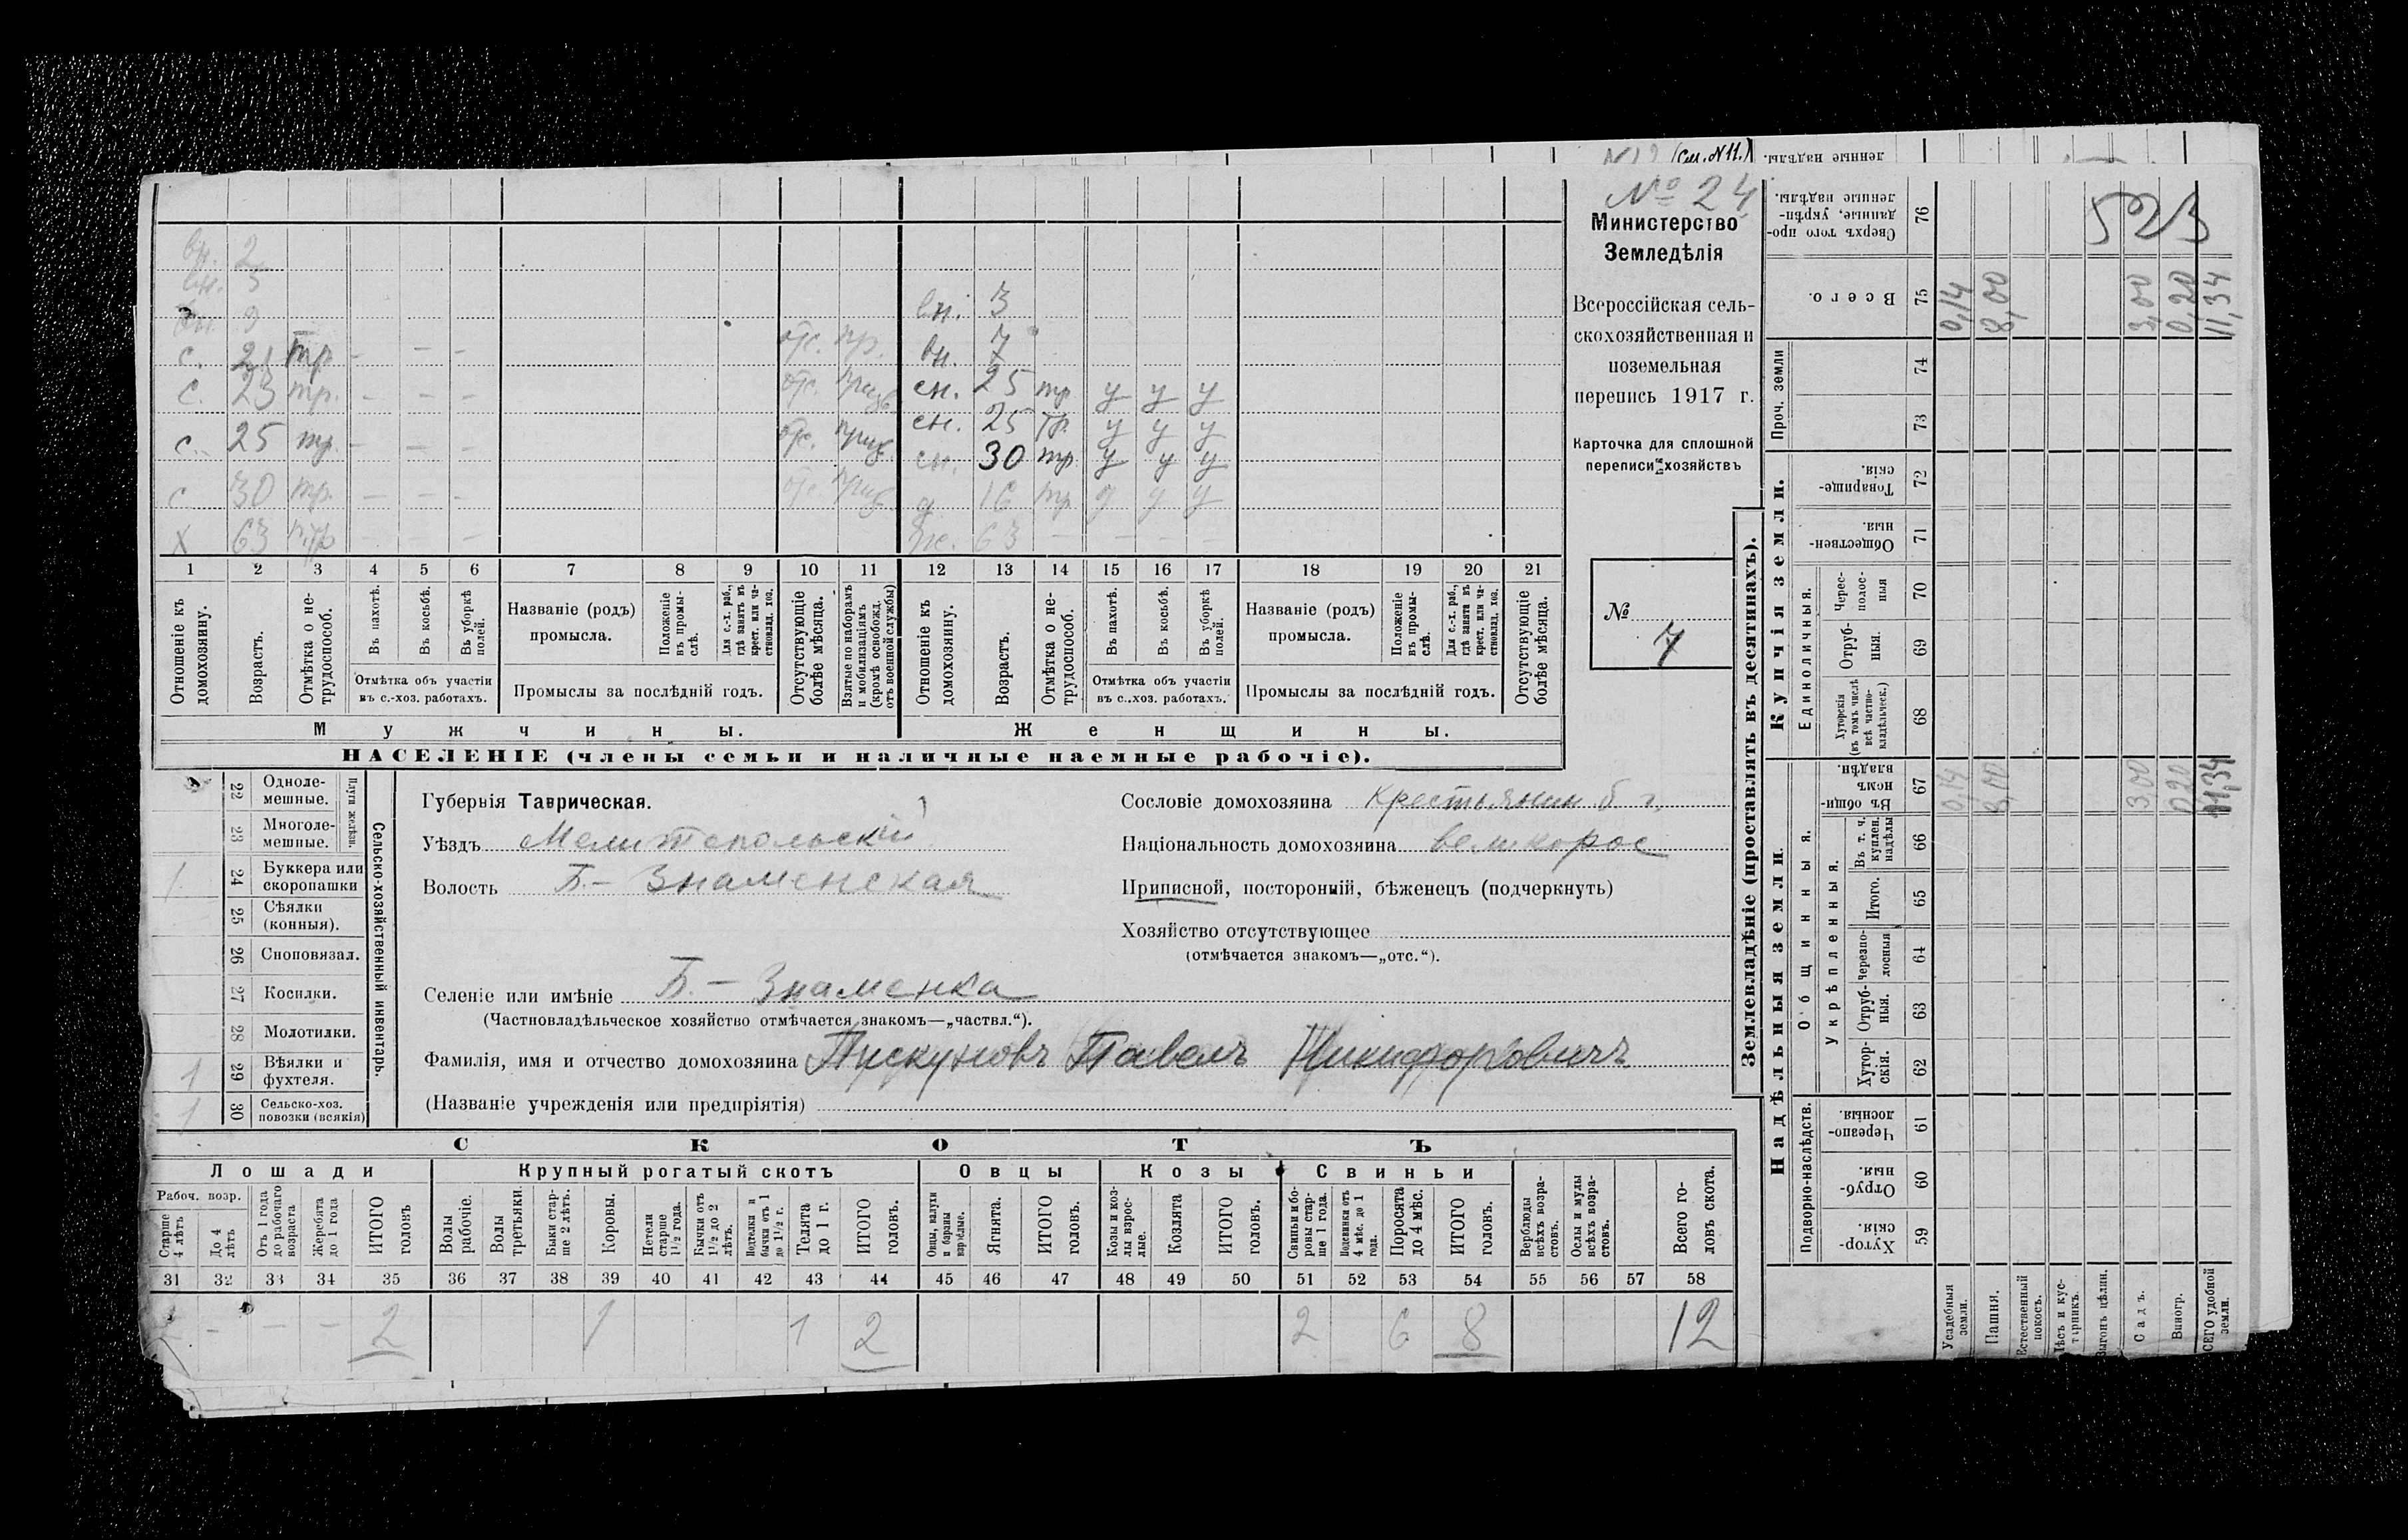 (См. N 11.)
№ 24
Министерство
Земледѣлія
Всероссійская сель-
скохозяйственная и
поземельная
перепись 1917 г.
Карточка для сплошной
переписи хозяйствъ
№
7
вн. 2
вн. 5
вн. 9 вн. 3
с. 21 тр. - - - отс. пр. вн. 7
с. 23 тр. - - - отс. приз. сн. 25 тр. у у у
с. 25 тр. - - - отс. приз. сн. 25 тр. у у у
сн. 30 тр. у у у
с 30 тр. - - - отс. приз. д. 16 тр. у у у
х 63 п.тр - - - ж. 63 - - - -
1 2 3 4 5 6 7 8 9 10 11 12 13 14 15 16 17 18 19 20 21
Отношеніе къ домохозяину.
Возрастъ.
Отмѣтка о не-трудоспособ.
Въ пахотѣ.
Въ косьбѣ.
Въ уборкѣ полей.
Отмѣтка объ участіи
въ с.-хоз. работахъ.
Названіе (родъ)
промысла.
Положеніе въ промы-слѣ.
Для с.-х. раб., гдѣ занятъ въ крест. или ча-стновлад. хоз.
Промыслы за послѣдній годъ.
Отсутствующіе болѣе мѣсяца.
Взятые по наборамъ и мобилизаціямъ (кромѣ освобожд. отъ военной службы)
Отношеніе къ домохозяину.
Возрастъ.
Отмѣтка о не-трудоспособ.
Въ пахотѣ.
Въ косьбѣ.
Въ уборкѣ полей.
Отмѣтка объ участіи
въ с.-хоз. работахъ.
Названіе (родъ)
промысла.
Положеніе въ промы-слѣ.
Для с.-х. раб., гдѣ занята въ крест. или ча-стновлад. хоз.
Промыслы за послѣдній годъ.
Отсутствующіе болѣе мѣсяца.
Мужчины. Женщины.
НАСЕЛЕНІЕ (члены семьи и наличные наемные рабочіе).
22 Одноле-мешные.
23 Многоле-мешные.
Плуги желѣзн.
1 24 Буккера или скоропашки
25 Сѣялки (конныя).
26 Сноповязал.
27 Косилки.
28 Молотилки.
1 29 Вѣялки и фухтеля.
1 30 Сельско-хоз. повозки (всякія)
Сельско-хозяйственный инвентарь.
Губернія Таврическая.
Уѣздъ Мелитопольскій
Волость Б.- Знаменская
Селеніе или имѣніе Б. - Знаменка
(Частновладѣльческое хозяйство отмѣчается знакомъ—„частвл.“).
Фамилія, имя и отчество домохозяина Пискуновъ Павелъ Никифоровичъ
(Названіе учрежденія или предпріятія)
Сословіе домохозяина крестьянин б г.
Національность домохозяина великорос
Приписной, посторонній, бѣженецъ (подчеркнуть)
Хозяйство отсутствующее
(отмѣчается знакомъ—„отс.“).
СКОТЪ
Лошади Крупный рогатый скотъ Овцы Козы Свиньи
Рабоч. возр.
Старше 4 лѣтъ
До 4 лѣтъ
Отъ 1 года до рабочаго возраста
Жеребята до 1 года
ИТОГО головъ
Волы рабочіе.
Волы третьяки.
Быки стар-ше 2 лѣтъ.
Коровы.
Нетели старше 1½ года.
Бычки отъ 1½ до 2 лѣтъ.
Подтелки и бычки отъ 1 до 1½ г.
Телята до 1 г.
ИТОГО головъ.
Овцы, валухи и бараны взрослые.
Ягнята.
ИТОГО головъ.
Козы и коз-лы взрос-лые.
Козлята
ИТОГО головъ.
Свиньи и бо-ровы стар-ше 1 года.
Подсвинки отъ 4 мѣс. до 1 года.
Поросята до 4 мѣс.
ИТОГО головъ.
Верблюды всѣхъ возра-стовъ.
Ослы и мулы всѣхъ возра-стовъ.
Всего го-ловъ скота.
31 32 33 34 35 36 37 38 39 40 41 42 43 44 45 46 47 48 49 50 51 52 53 54 55 56 57 58
- - - 2 1 1 2 2 6 8 12
Землевладѣніе (проставлять въ десятинахъ).
Надѣльныя земли. Купчія земли.
Подворно-наслѣдств. Общинныя. Единоличныя. Проч. земли
Укрѣпленныя.
Хутор-скія. 59
Отруб-ныя. 60
Черезпо-лосныя. 61
Хутор-скія. 62
Отруб-ныя. 63
Черезпо-лосныя 64
Итого. 65
Въ т. ч. куплен. надѣлы 66
Въ общин-номъ владѣн. 67
Хуторскія (въ томъ числѣ всѣ частно-владѣльческ.) 68
Отруб-ныя. 69
Черес-полос-ныя 70
Обществен-ныя. 71
Товарище-скія. 72
73
74
Всего. 75
Сверхъ того про-данные, укрѣп-ленные надѣлы. 76
ленные надѣлы.
Усадебныя земли. 0,14 0,14
Пашня. 8,00 8,00
Естественный покосъ.
Лѣсъ и кус-тарникъ.
Выгонъ цѣлин.
Садъ. 3,00 3,00
Виногр. 0,20 0,20
ВСЕГО удобной земли. 11,34 11,34
525